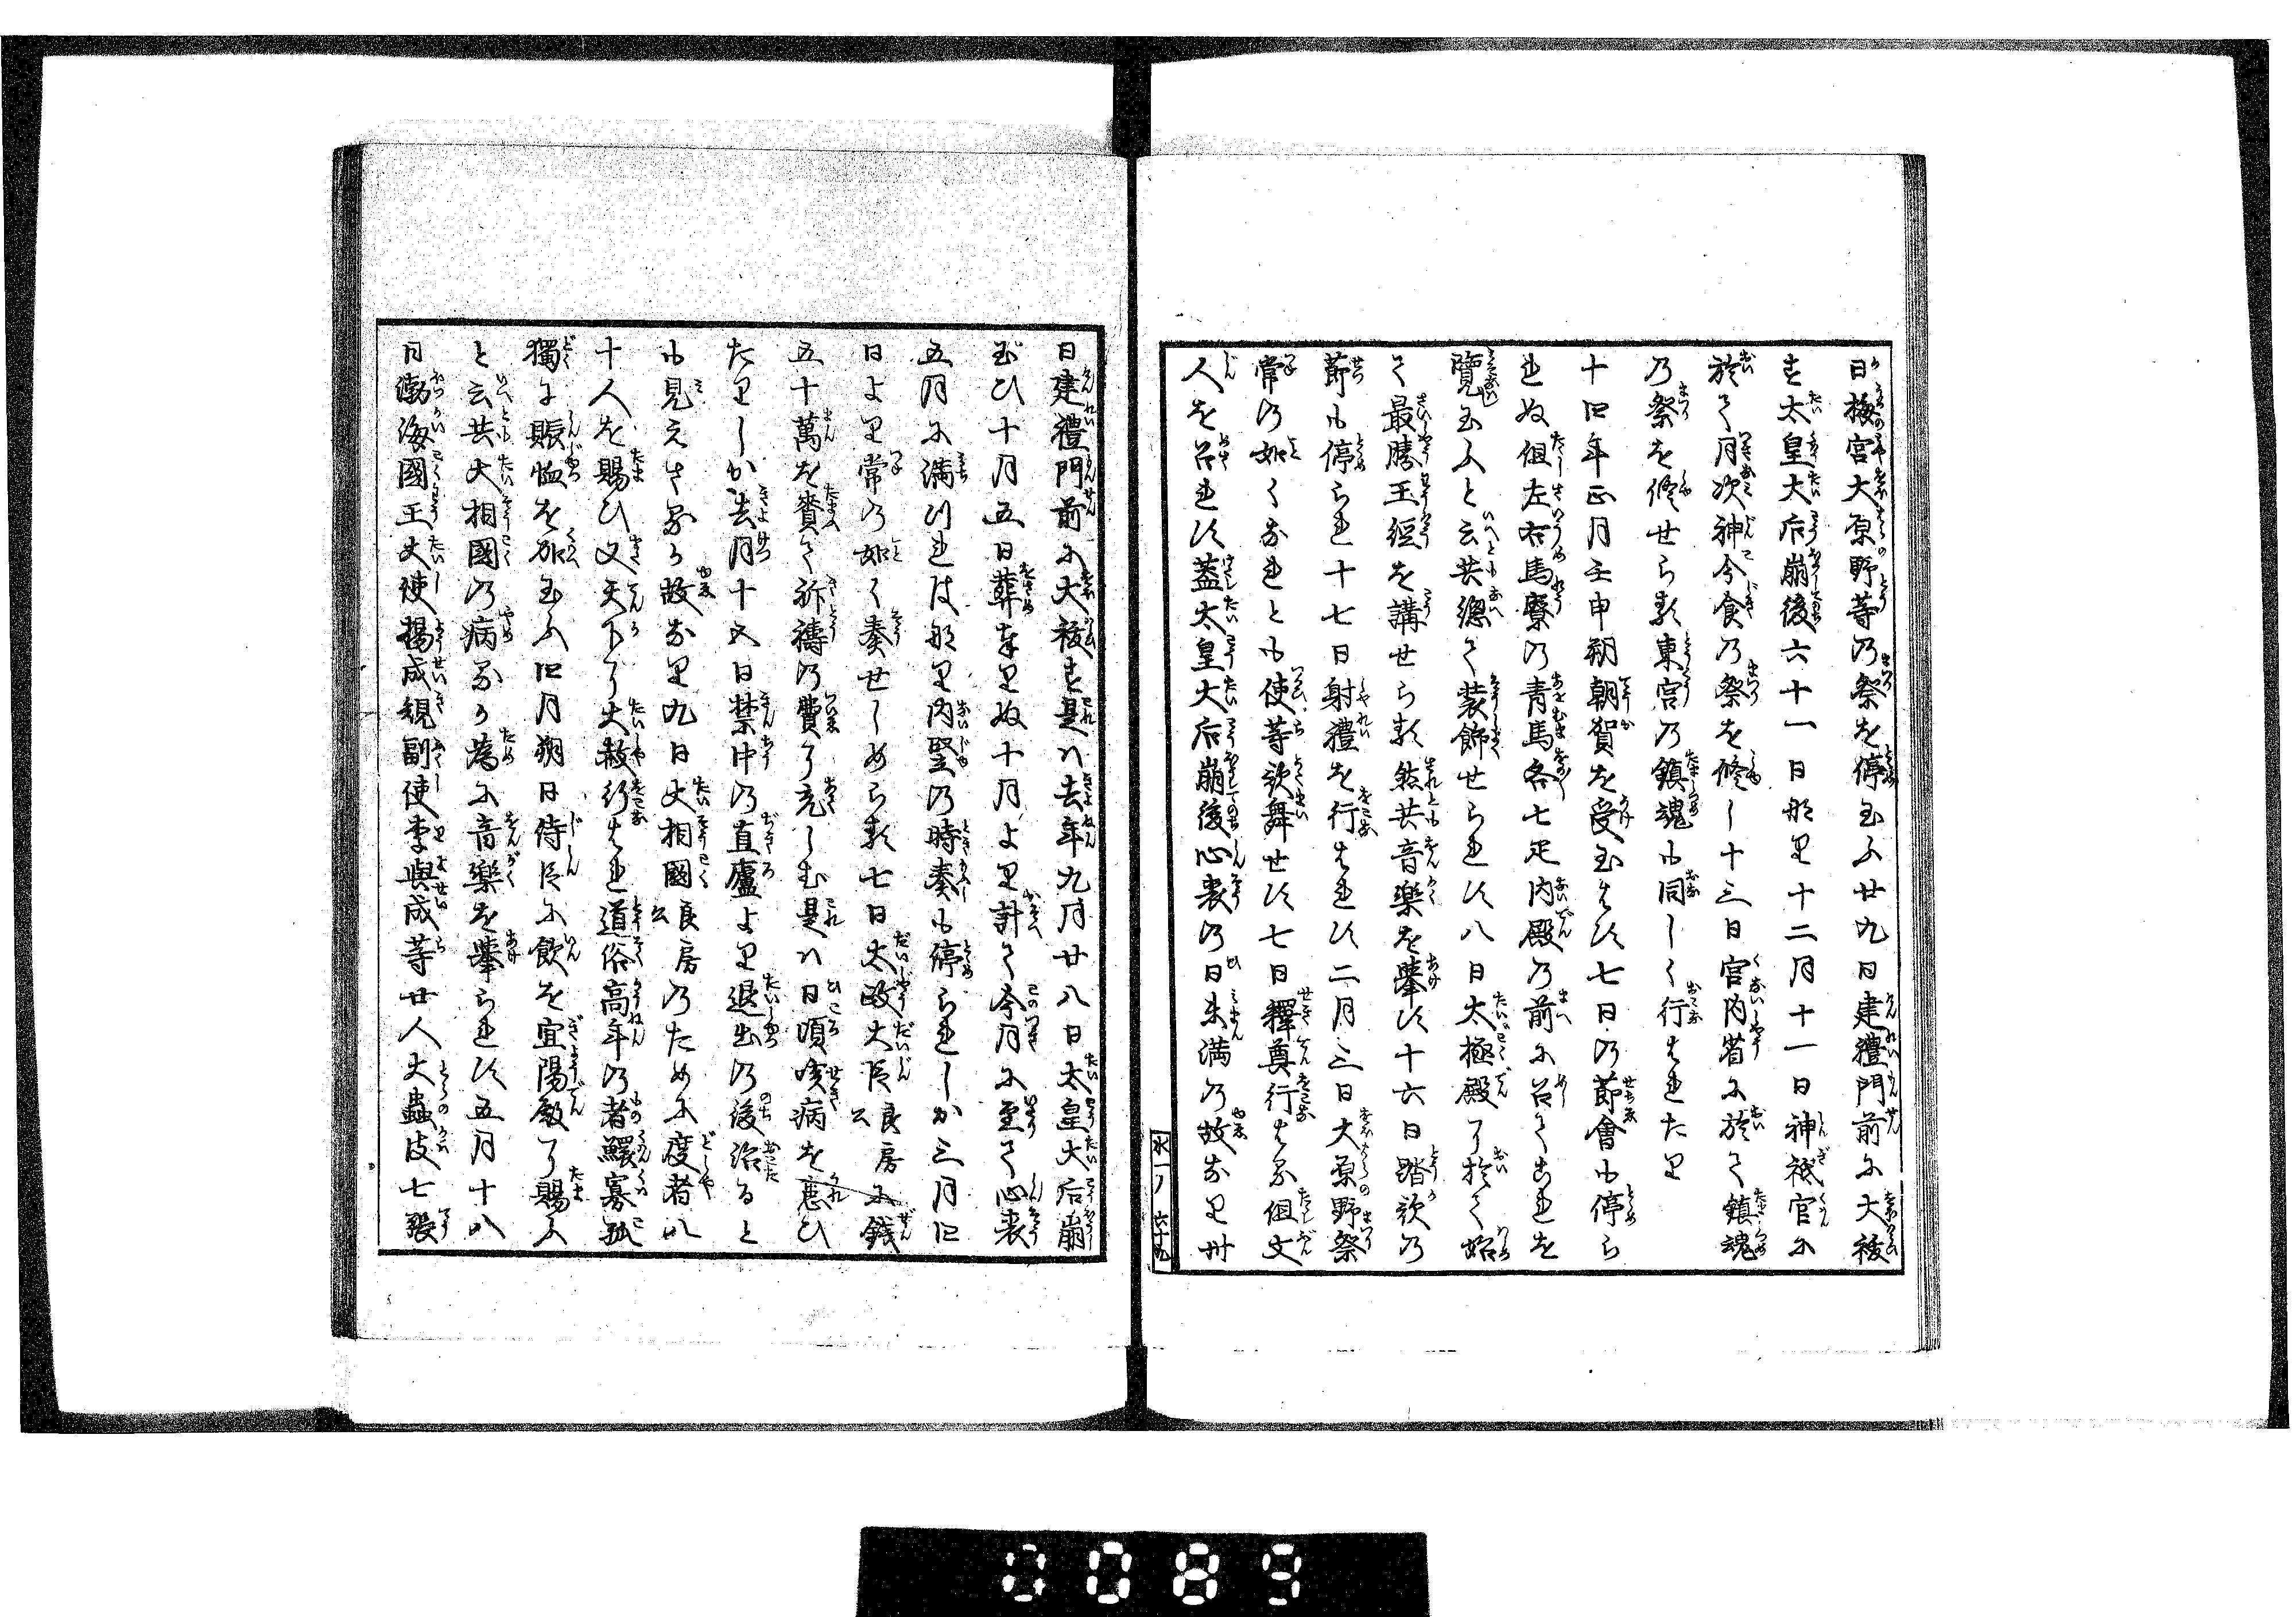 日梅宮大原野等の祭を停玉ふ廿九日建禮門前に大祓
す太皇大后崩後六十一日なり十二月十一日神祇官に
於て月次神今食の祭を修し十三日宮内省に於て鎮魂
の祭を修せらる東宮の鎮魂も同しく行はれたり
十四年正月壬申朔朝賀を受玉はす七日の節會も停ら
れぬ但左右馬寮の青馬各七疋内殿の前に召てこれを
覽玉ふと云共總て装飾せられす八日太極殿に於て始
て最勝王經を講せらる然共音樂を擧す十六日踏歌の
節も停られ十七日射禮を行はれす二月三日大原野祭
常の如くなれとも使等歌舞せす七日釋奠行はる但文
人を召れす蓋太皇大后崩後心喪の日未満の故なり卅
水一ノ 六十九
日建禮門前に大祓す是は去年九月廿八日太皇大后崩
玉ひ十月五日葬奉りぬ十月より計て今月に至て心喪
五月に満つれはなり内竪の時奏も停られしか三月四
日より常の如く奏せしめらる七日太政大臣良房公に錢
五十萬を賚て祈禱の費に充しむ是は日頃咳病を患ひ
たりしか去月十五日禁中の直廬より退出の後治ると
も見えさるか故なり九日大相國良房公のために度者八
十人を賜ひ又天下に大赦行はれ道俗高年の者鰥寡孤
獨に賑恤を加玉ふ四月朔日侍臣に飲を宜陽殿に賜ふ
と云共大相國の病るか為に音樂を擧られす五月十八
日渤海國王大使揚成規副使李與成等廿人大蟲皮七張